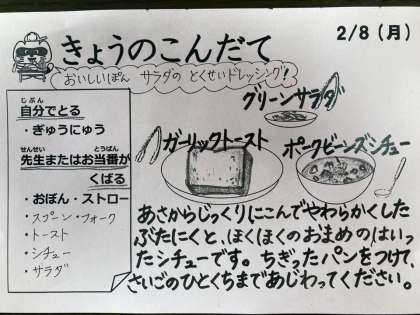 2/8(月)
きょうのこんだて
おいしいぽん サラダの とくせいドレッシング!
グリーンサラダ
ガーリックトースト
ポークビーンズシチュー
じぶん
自分でとる
・ぎゅうにゅう
せんせい とうばん
先生またはお当番が
くばる
・おぼん・ストロー
・スプーン・フォーク
・トースト
・シチュー
・サラダ
あさからじっくりにこんでやわらかくした
ぶたにくと、ほくほくのおまめのはいっ
たシチューです。ちぎったパンをつけて、
さいごのひとくちまであじわってください。